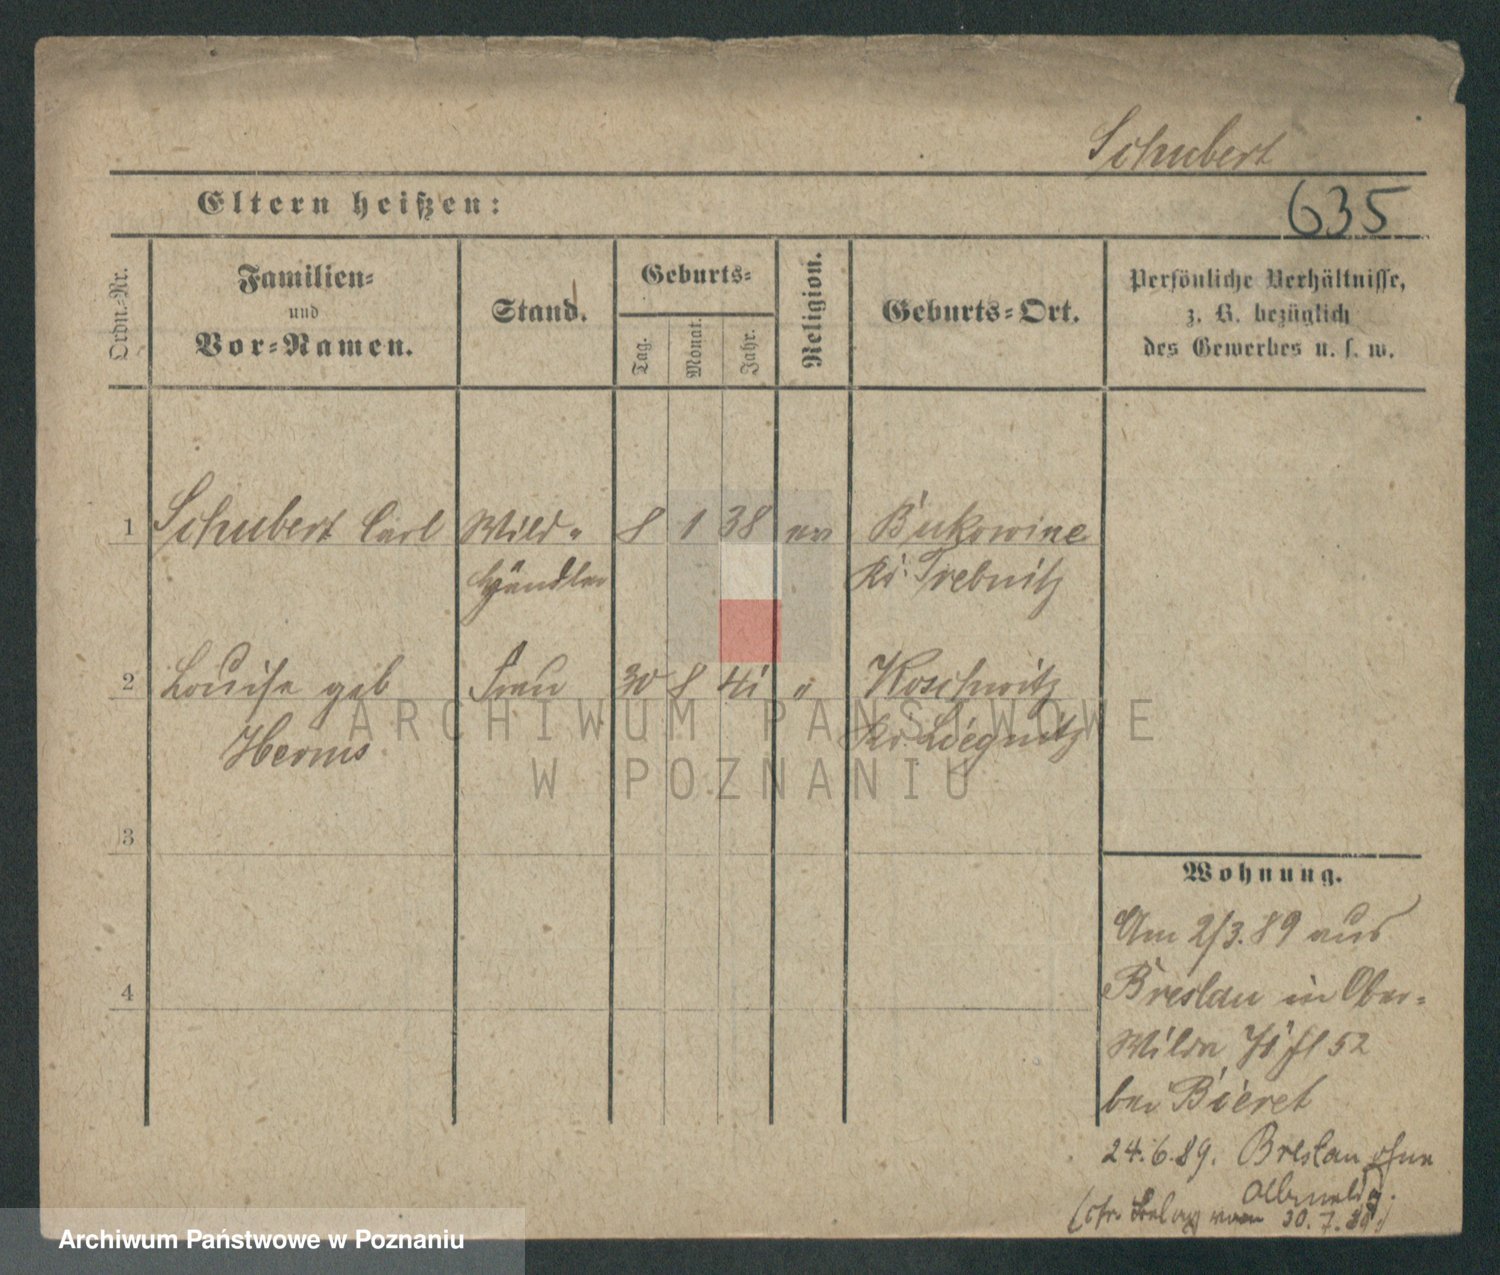 Schubert
Eltern heißen:
635
Ordn.-Nr.
Familien-
und
Vor-Namen.
Stand.
Geburts-
Tag.
Monat.
Jahr.
Religion.
Geburts-Ort.
Persönliche Verhältnisse,
z. B. bezüglich
des Gewerbes u. s. w.
1 Schubert Carl Wild- 8 1 38 ev Bukowine
Händler Kr. Trebnitz
2 Louise geb Frau 30 8 41 " Koschwitz
Herms Kr. Liegnitz
3
4
Wohnung.
Am 2/3.89 aus
Breslau in Ober-
Wilda 52
bei Bieret
24.6.89. Breslau ohne
Abmeldg.
30.7.89
ARCHIWUM PAŃSTWOWE
W POZNANIU
Archiwum Państwowe w Poznaniu